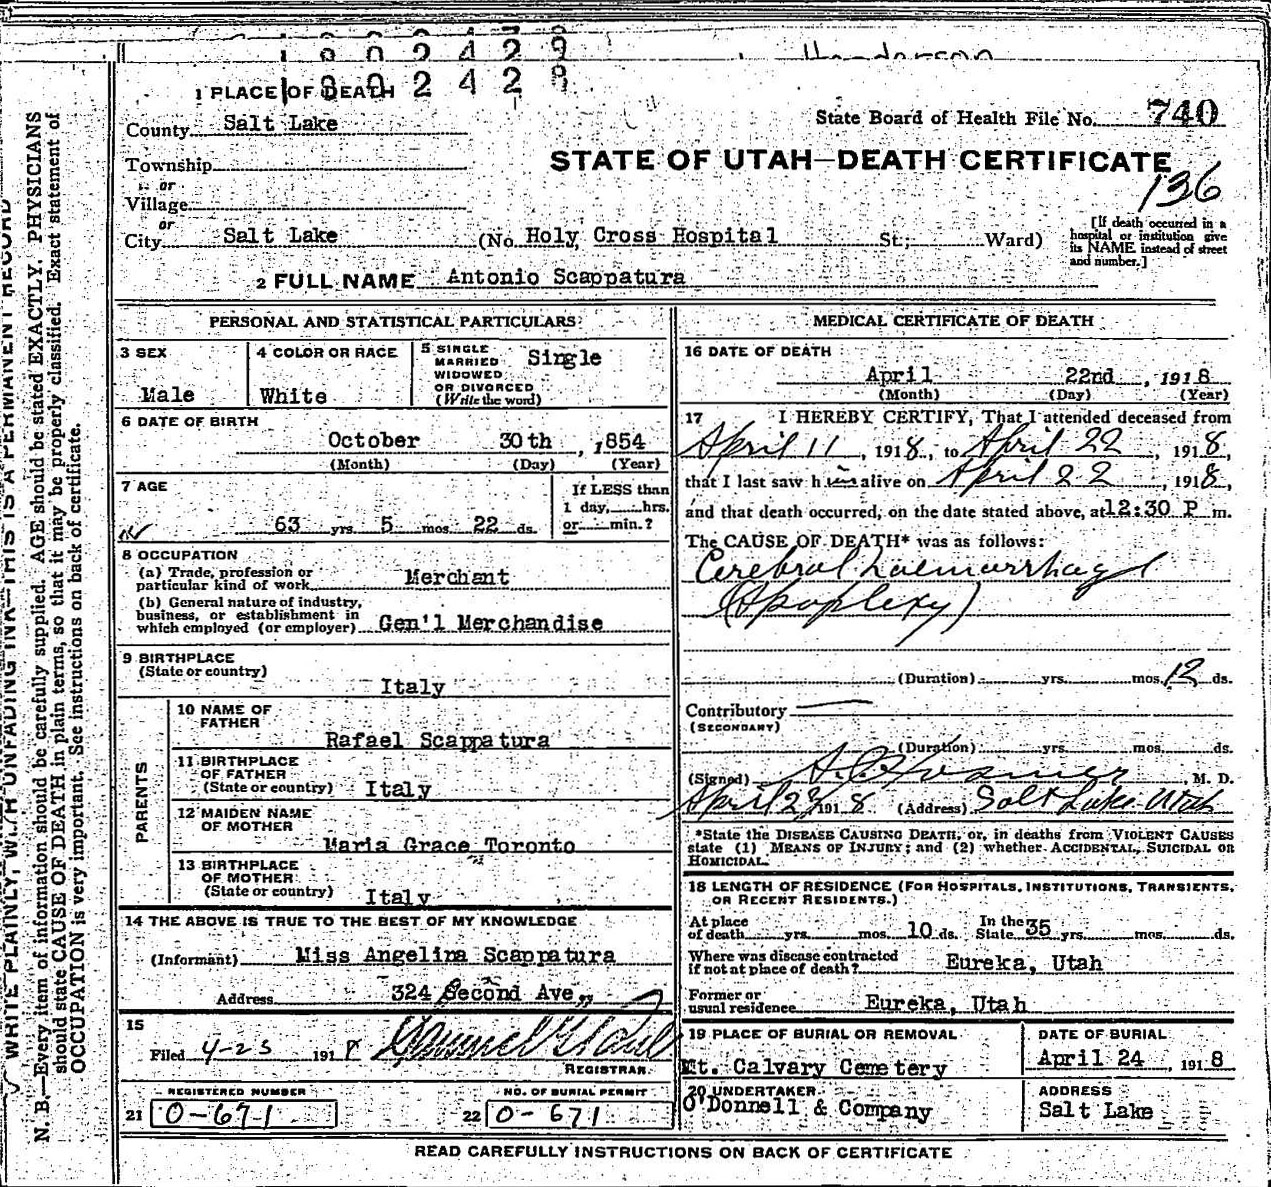 1802429
Henderson
1802428
1 PLACE OF DEATH
County Salt Lake
State Board of Health File No. 740
STATE OF UTAH—DEATH CERTIFICATE
136
Township
or
Village
or
City Salt Lake (No. Holy Cross Hospital St.; Ward)
[If death occurred in a hospital or institution give its NAME instead of street and number.]
2 FULL NAME Antonio Scappatura
PERSONAL AND STATISTICAL PARTICULARS
3 SEX
Male
4 COLOR OR RACE
White
5 SINGLE
MARRIED
WIDOWED
OR DIVORCED
(Write the word)
Single
6 DATE OF BIRTH
October 30th, 1854
(Month) (Day) (Year)
7 AGE
63 yrs. 5 mos. 22 ds.
If LESS than
1 day, hrs.
or min.?
8 OCCUPATION
(a) Trade, profession or
particular kind of work Merchant
(b) General nature of industry,
business, or establishment in
which employed (or employer) Gen'l Merchandise
9 BIRTHPLACE
(State or country)
Italy
PARENTS
10 NAME OF
FATHER
Rafael Scappatura
11 BIRTHPLACE
OF FATHER
(State or country) Italy
12 MAIDEN NAME
OF MOTHER
Maria Grace Toronto
13 BIRTHPLACE
OF MOTHER
(State or country) Italy
14 THE ABOVE IS TRUE TO THE BEST OF MY KNOWLEDGE
(Informant) Miss Angelina Scappatura
Address 324 Second Ave.,
15
Filed 4-23 1918
REGISTRAR.
REGISTERED NUMBER
21 0-671
NO. OF BURIAL PERMIT
22 0-671
MEDICAL CERTIFICATE OF DEATH
16 DATE OF DEATH
April 22nd, 1918
(Month) (Day) (Year)
17 I HEREBY CERTIFY, That I attended deceased from
April 11, 1918, to April 22, 1918,
that I last saw him alive on April 22, 1918,
and that death occurred, on the date stated above, at 12:30 P m.
The CAUSE OF DEATH* was as follows:
Cerebral haemorrhage
(Apoplexy)
(Duration) yrs. mos. 12 ds.
Contributory
(SECONDARY)
(Duration) yrs. mos. ds.
(Signed) M. D.
April 23 1918 (Address) Salt Lake Utah
*State the DISEASE CAUSING DEATH, or, in deaths from VIOLENT CAUSES
state (1) MEANS OF INJURY; and (2) whether ACCIDENTAL, SUICIDAL OR
HOMICIDAL.
18 LENGTH OF RESIDENCE (FOR HOSPITALS, INSTITUTIONS, TRANSIENTS,
OR RECENT RESIDENTS.)
At place
of death yrs. mos. 10 ds. In the State 35 yrs. mos. ds.
Where was disease contracted
if not at place of death? Eureka, Utah
Former or
usual residence Eureka, Utah
19 PLACE OF BURIAL OR REMOVAL
Mt. Calvary Cemetery
DATE OF BURIAL
April 24, 1918
20 UNDERTAKER
O'Donnell & Company
ADDRESS
Salt Lake
READ CAREFULLY INSTRUCTIONS ON BACK OF CERTIFICATE
WRITE PLAINLY, WITH UNFADING INK—THIS IS A PERMANENT RECORD
N. B.—Every item of information should be carefully supplied. AGE should be stated EXACTLY. PHYSICIANS
should state CAUSE OF DEATH in plain terms, so that it may be properly classified. Exact statement of
OCCUPATION is very important. See instructions on back of certificate.